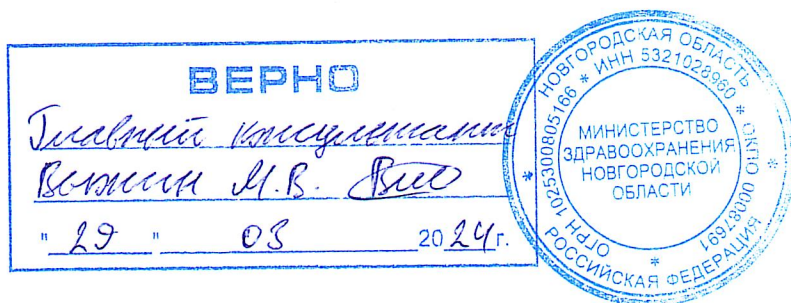 ВЕРНО
Главный консультант
М.В.
"29" 03 2024г.
НОВГОРОДСКАЯ ОБЛАСТЬ * ИНН 5321028960 * ОКПО 00087691
РОССИЙСКАЯ ФЕДЕРАЦИЯ * ОГРН 1025300805166 *
МИНИСТЕРСТВО
ЗДРАВООХРАНЕНИЯ
НОВГОРОДСКОЙ
ОБЛАСТИ